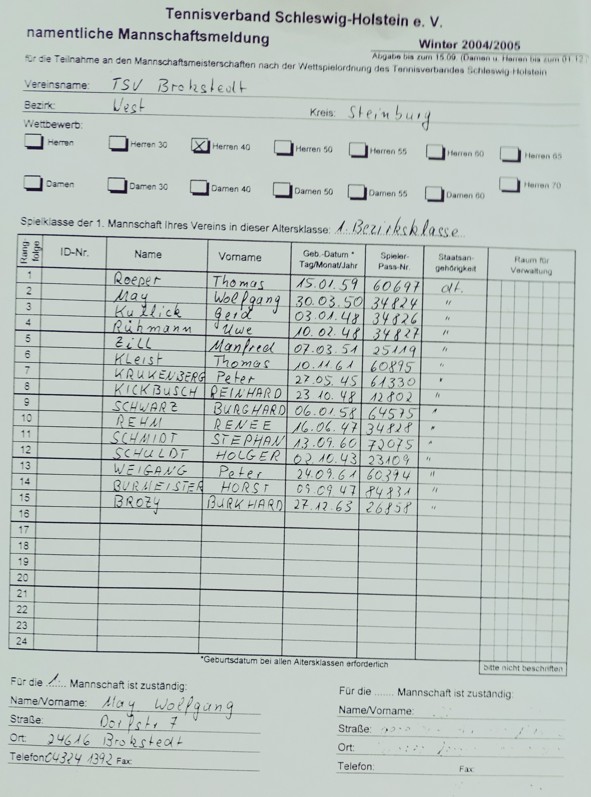 Tennisverband Schleswig-Holstein e. V.
namentliche Mannschaftsmeldung
Winter 2004/2005
Abgabe bis zum 15.09. (Damen u. Herren bis zum 01.12.
für die Teilnahme an den Mannschaftsmeisterschaften nach der Wettspielordnung des Tennisverbandes Schleswig-Holstein
Vereinsname: TSV Brokstedt
Bezirk: West Kreis: Steinburg
Wettbewerb:
Herren Herren 30 X Herren 40 Herren 50 Herren 55 Herren 60 Herren 65
Damen Damen 30 Damen 40 Damen 50 Damen 55 Damen 60 Herren 70
Spielklasse der 1. Mannschaft Ihres Vereins in dieser Altersklasse: 1. Bezirksklasse
Rang folge ID-Nr. Name Vorname Geb.-Datum * Tag/Monat/Jahr Spieler-Pass-Nr. Staatsan-gehörigkeit Raum für Verwaltung
1 Roeper Thomas 15.01.59 60697 dt.
2 May Wolfgang 30.03.50 34824 "
3 Gerd 03.01.48 34826 "
4 Rühmann Uwe 10.02.48 34827 "
5 Zill Manfred 07.03.51 25119 "
6 Kleist Thomas 10.11.61 60895 "
7 KRUKENBERG Peter 27.05.45 61330 "
8 KICKBUSCH REINHARD 23.10.48 12802 "
9 SCHWARZ BURGHARD 06.01.58 64575 "
10 REHM RENEE 16.06.47 34828 "
11 SCHMIDT STEPHAN 13.09.60 72075 "
12 SCHULDT HOLGER 02.10.43 23109 "
13 WEIGANG Peter 24.09.61 60394 "
14 BURMEISTER HORST 09.09.47 84831 "
15 BROZY BURKHARD 27.12.63 26858 "
16
17
18
19
20
21
22
23
24
*Geburtsdatum bei allen Altersklassen erforderlich
bitte nicht beschriften
Für die 1. Mannschaft ist zuständig:
Name/Vorname: May Wolfgang
Straße: Dorfstr. 7
Ort: 24616 Brokstedt
Telefon: 04324 1392 Fax:
Für die ....... Mannschaft ist zuständig:
Name/Vorname:
Straße:
Ort:
Telefon: Fax: